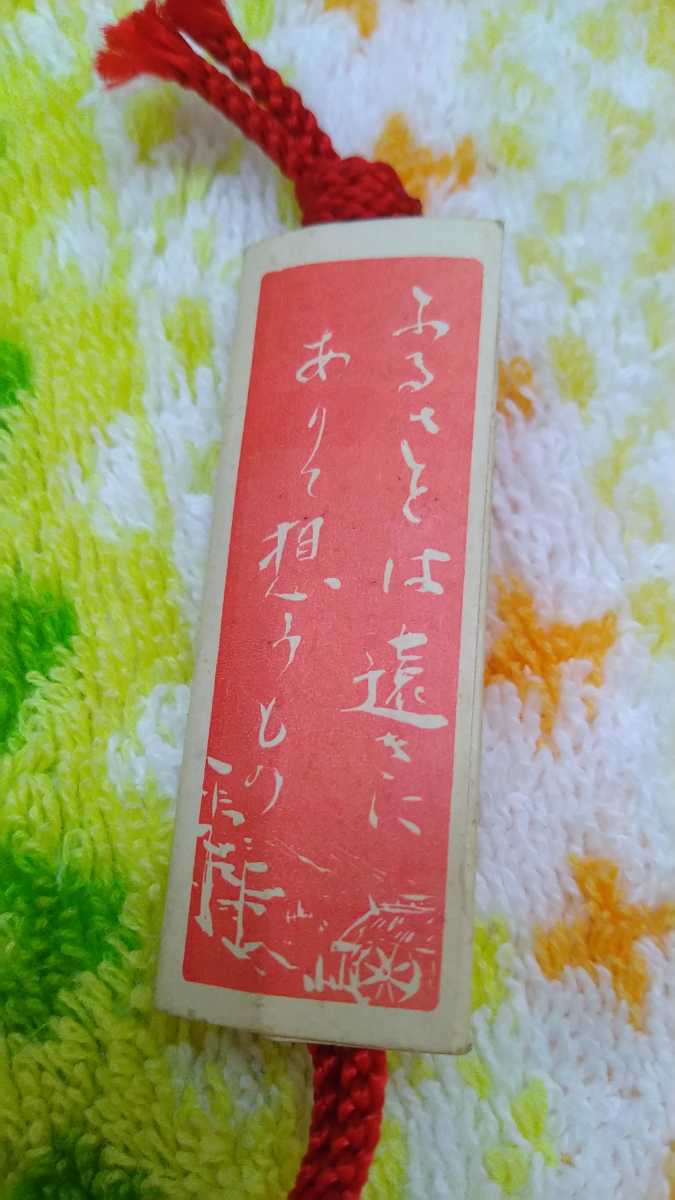 ふるさとは遠きに
ありて想うもの